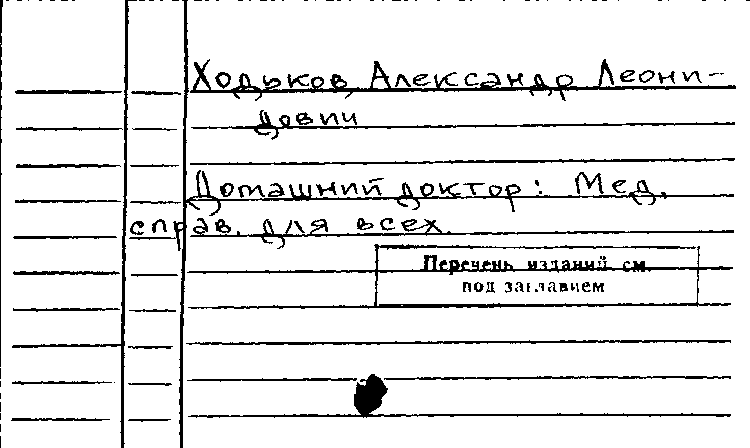 Ходьков, Александр Леони-
дович
Домашний доктор: Мед.
справ. для всех.
Перечень изданий см.
под заглавием